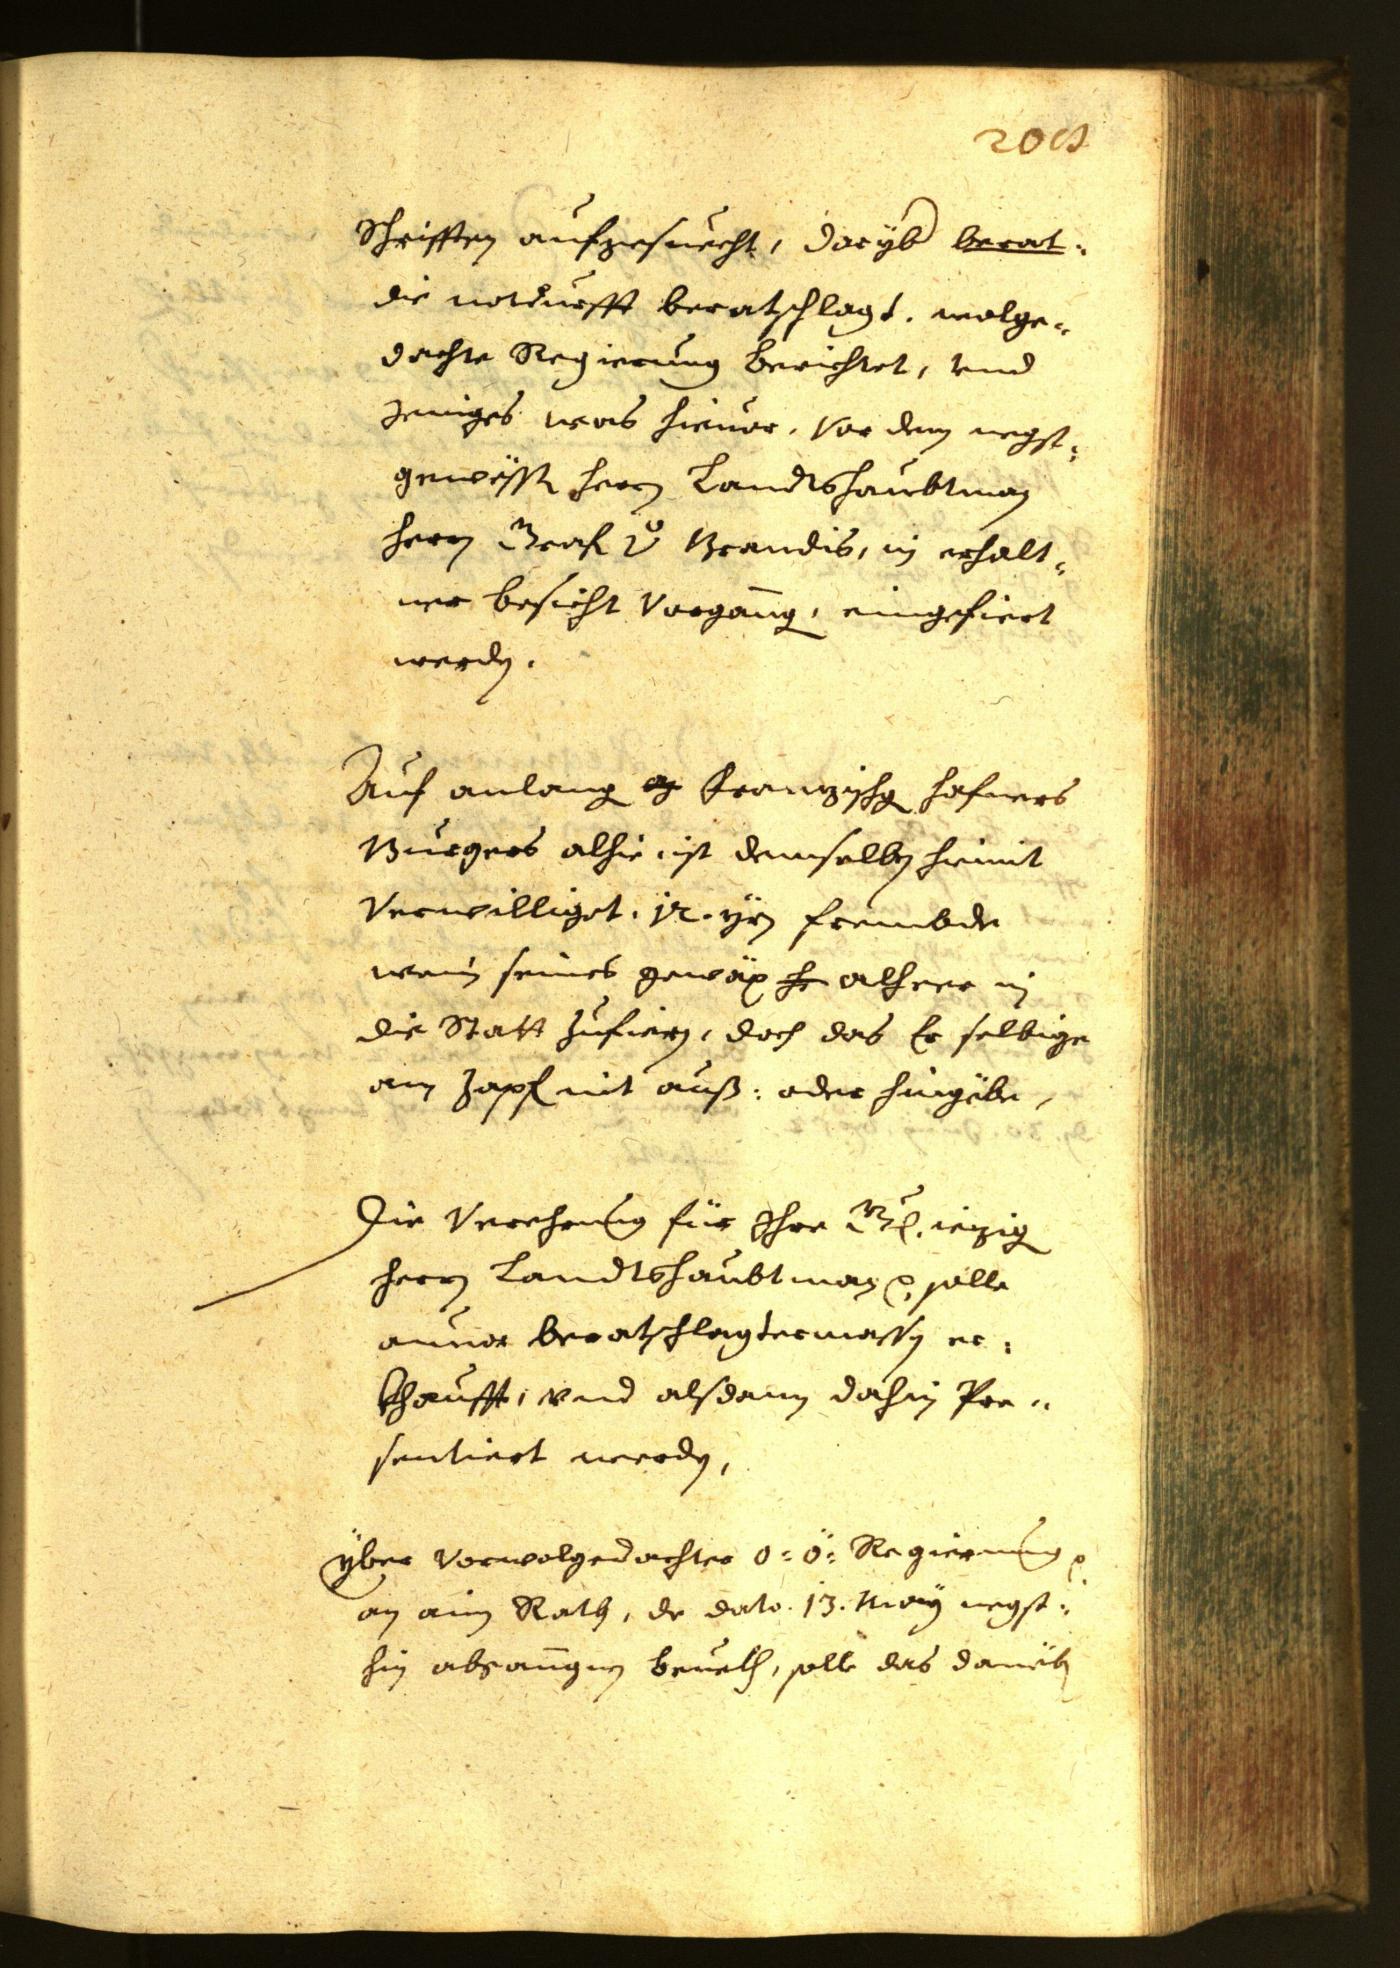 Schrifften aufgesuecht, daryber berat:
die notdurfft beratschlagt. wolge„
dachte Regierung berichtet, vnd
Jeniges was hieuor, vor dem negst„
gewesten herrn Landtshaubtman
herrn Graf v Brandis, in erhalt„
ner besicht vorgang, eingefiert
werden.
Auf anlang Franzischg hafners
Burgers alhie ist demselben hiemit
Verwilliget. 12. yrn frembde
wein seines gewäx alheer in
die Statt zufiern, doch das Er selbige
am Zapfl nit auß: oder hingebe,
Die Verehrung für Ihre Gl. iezig
herrn Landtshaubtman solle
anuor beratschlagtermassen er:
khaufft, vnd alßdann dahin Pre„
sentiert werden,
Yber vorwolgedachter o: ö: Regierung
an ain Rath, de dato. 13. May negst:
hin abgangnen beuelh, solle das